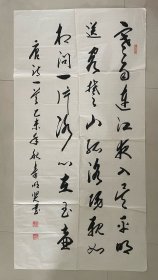 寒雨連江夜入吴平明
送客楚山孤洛陽親友如
相問一片冰心在玉壺
唐诗一首 未年秋 书